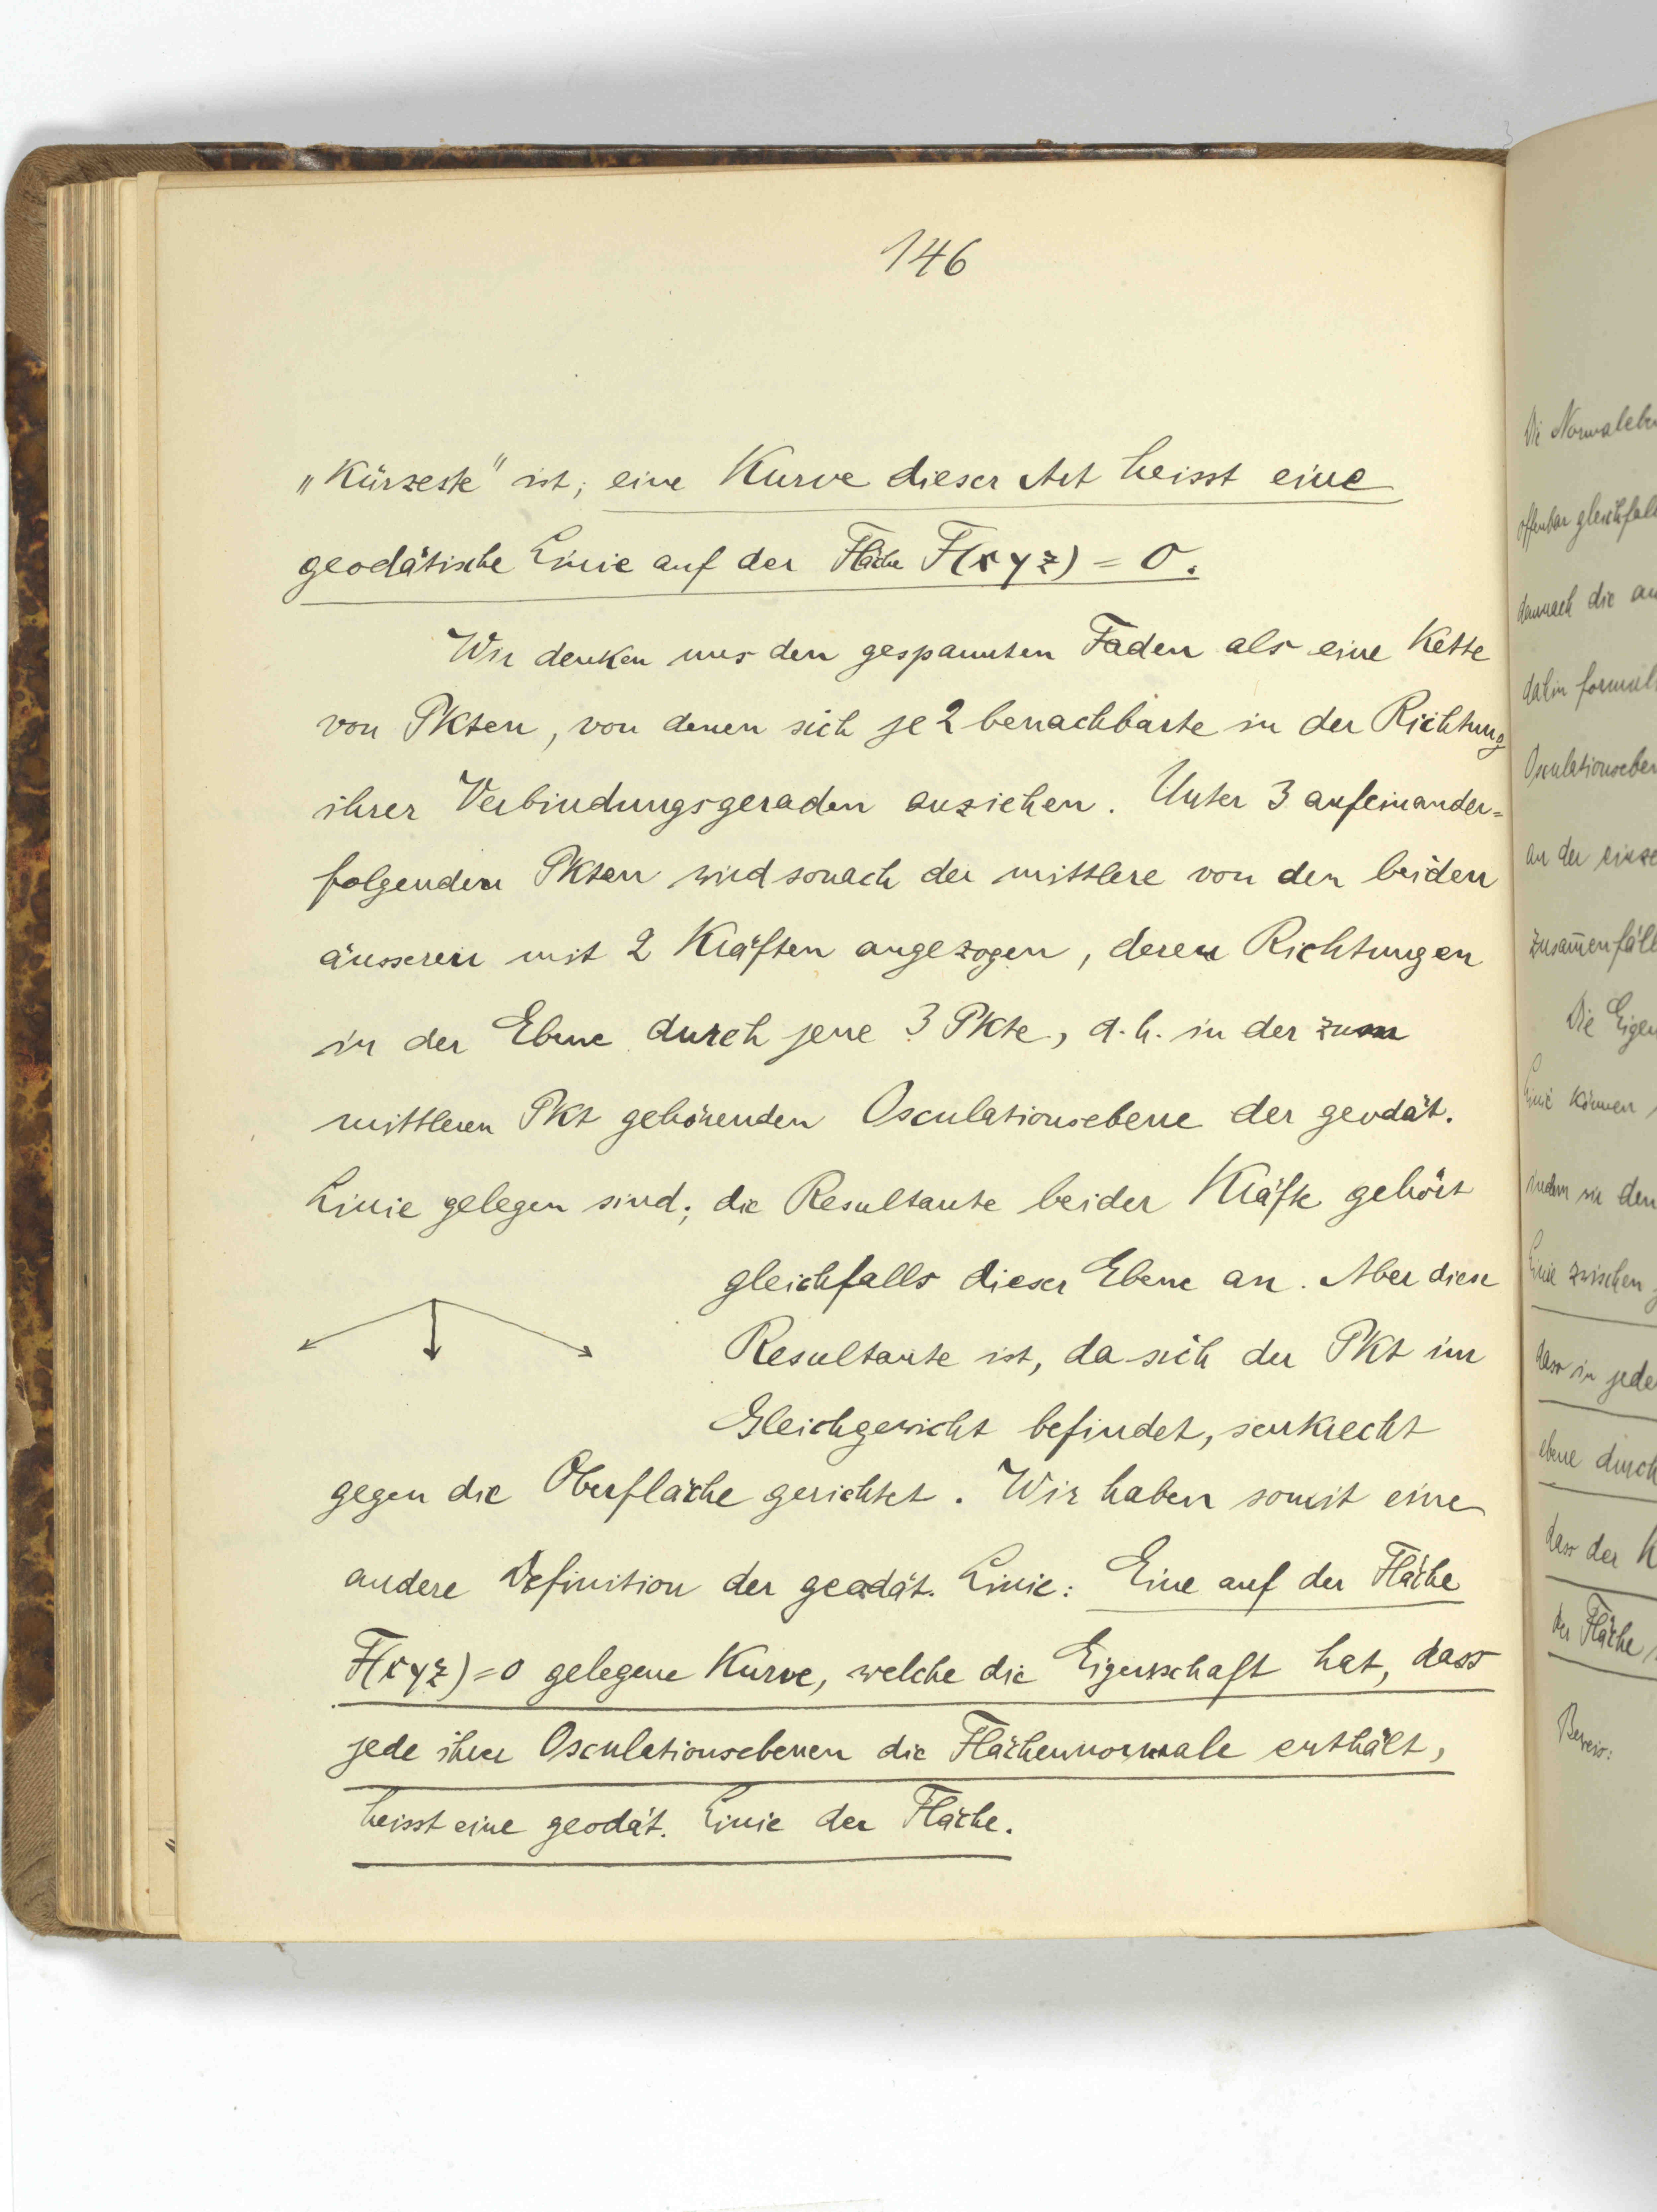 146
„Kürzeste" ist; eine Kurve dieser Art heisst eine
geodätische Linie auf der Fläche F(xyz) = 0.
Wir denken uns den gespannten Faden als eine Kette
von Pkten, von denen sich je 2 benachbarte in der Richtung
ihrer Verbindungsgeraden anziehen. Unter 3 aufeinander=
folgenden Pkten wird sonach der mittlere von den beiden
äusseren mit 2 Kräften angezogen, deren Richtungen
in der Ebene durch jene 3 Pkte, d.h. in der zum
mittleren Pkt gehörenden Osculationsebene der geodät.
Linie gelegen sind; die Resultante beider Kräfte gehört
gleichfalls dieser Ebene an. Aber diese
Resultante ist, da sich der Pkt im
Gleichgewicht befindet, senkrecht
gegen die Oberfläche gerichtet. Wir haben somit eine
andere Definition der geodät. Linie: Eine auf der Fläche
F(xyz)=0 gelegene Kurve, welche die Eigenschaft hat, dass
jede ihrer Osculationsebenen die Flächennormale enthält,
heisst eine geodät. Linie der Fläche.
Die
offenbar
darnach die
dahin
an der
Die
Linie können
indem sie den
Linie zwischen
dass in
ebene durch
dass der
der Fläche
Beweis: